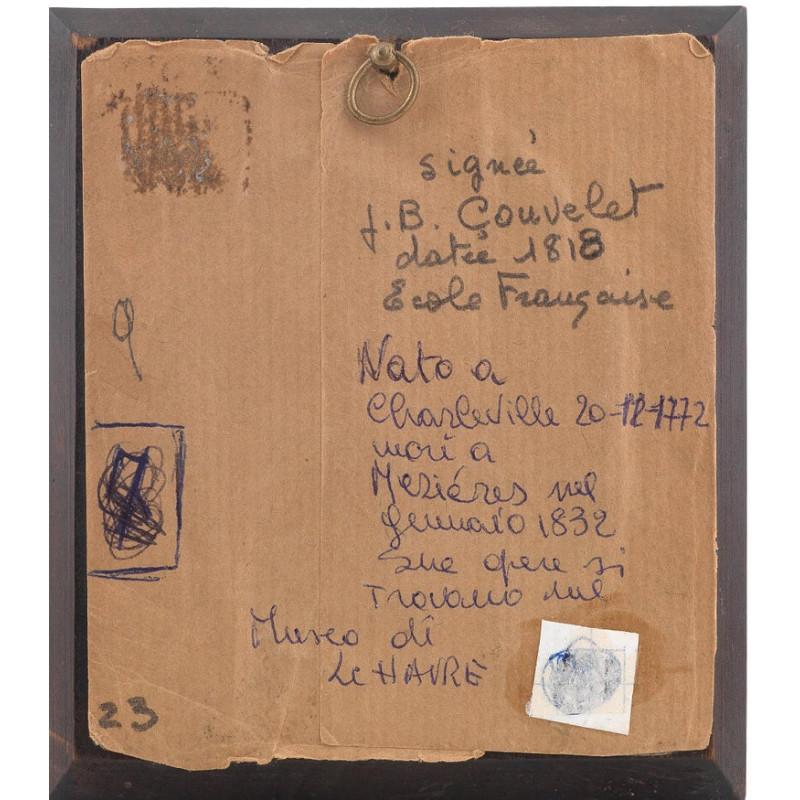 signée
J.B. Couvelet
datée 1818
Ecole Française
9
Nato a
Charleville 20-12-1772
morì a
Meziéres nel
gennaio 1832
Sue opere si
Trovano nel
Museo di
Le HAVRE
23